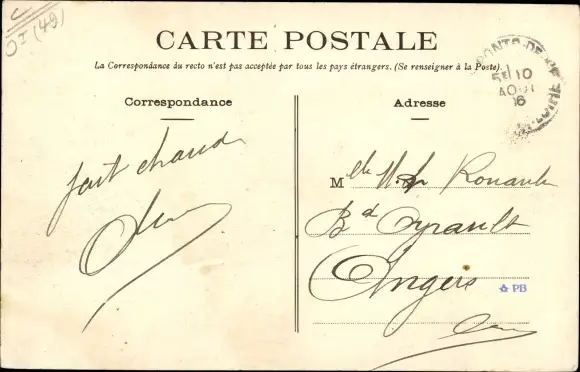 C
(49)
CARTE POSTALE
La Correspondance du recto n'est pas acceptée par tous les pays étrangers. (Se renseigner à la Poste).
PONTS-DE-CE
10
AOUT
06
Correspondance
Adresse
fait chaud
Mlle Ronault
Bd Ayrault
Angers
PB